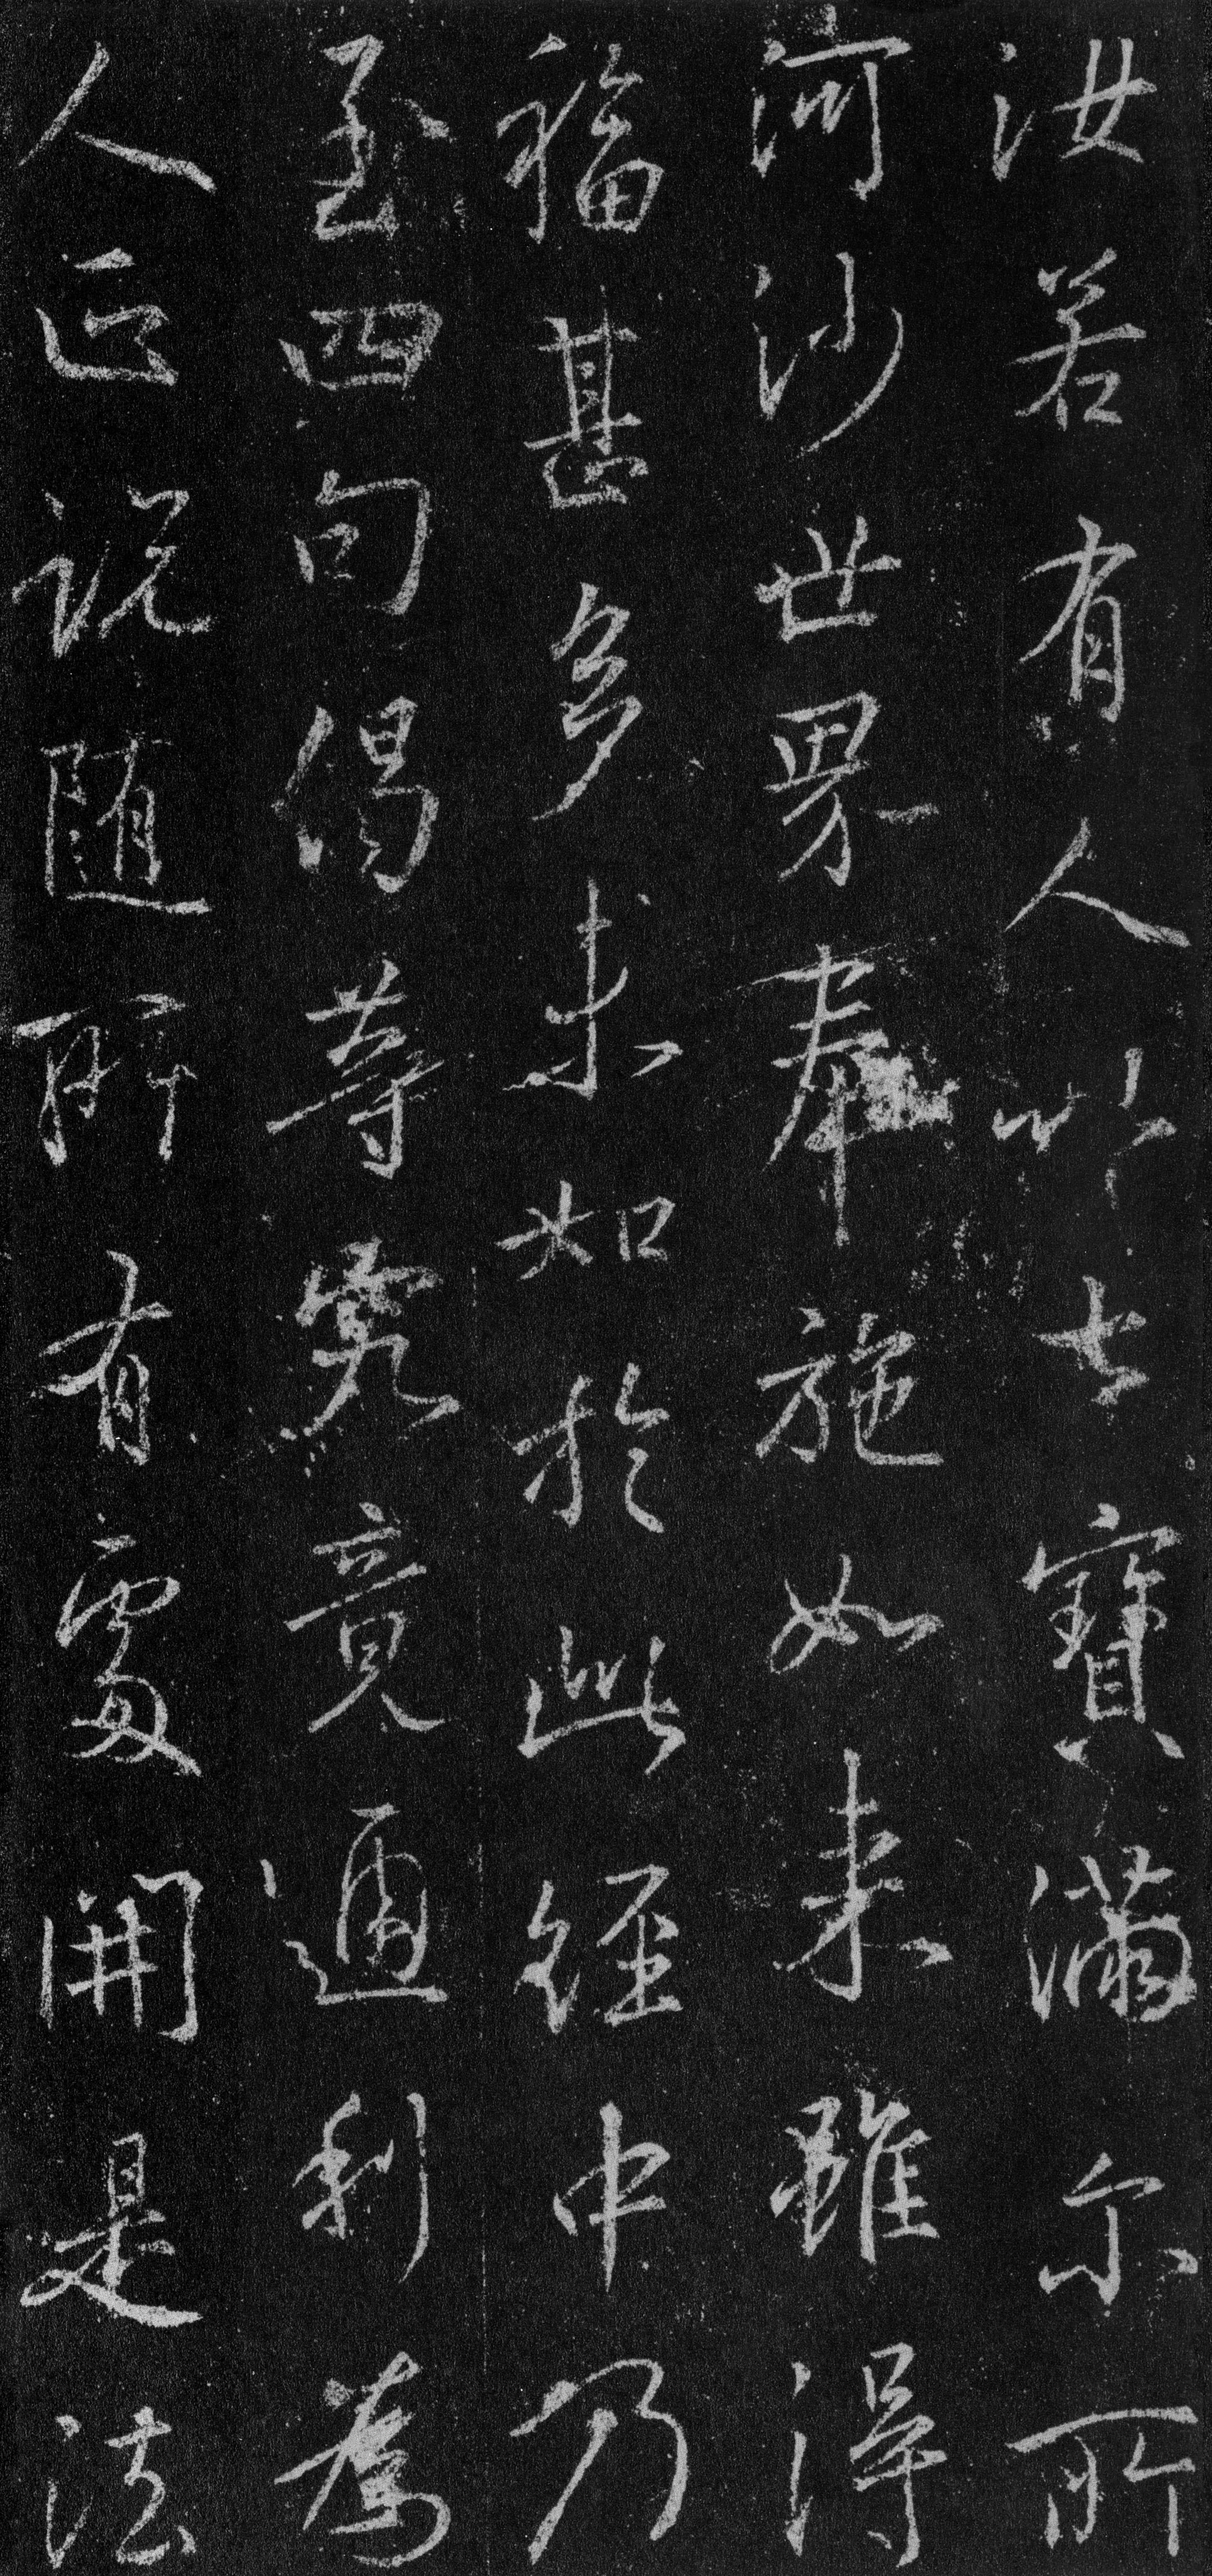 汝若有人以七寶滿尒所
河沙世界奉施如来雖得
福甚多未如於此经中乃
至四句偈等究竟通利為
人正説随所有處開是法